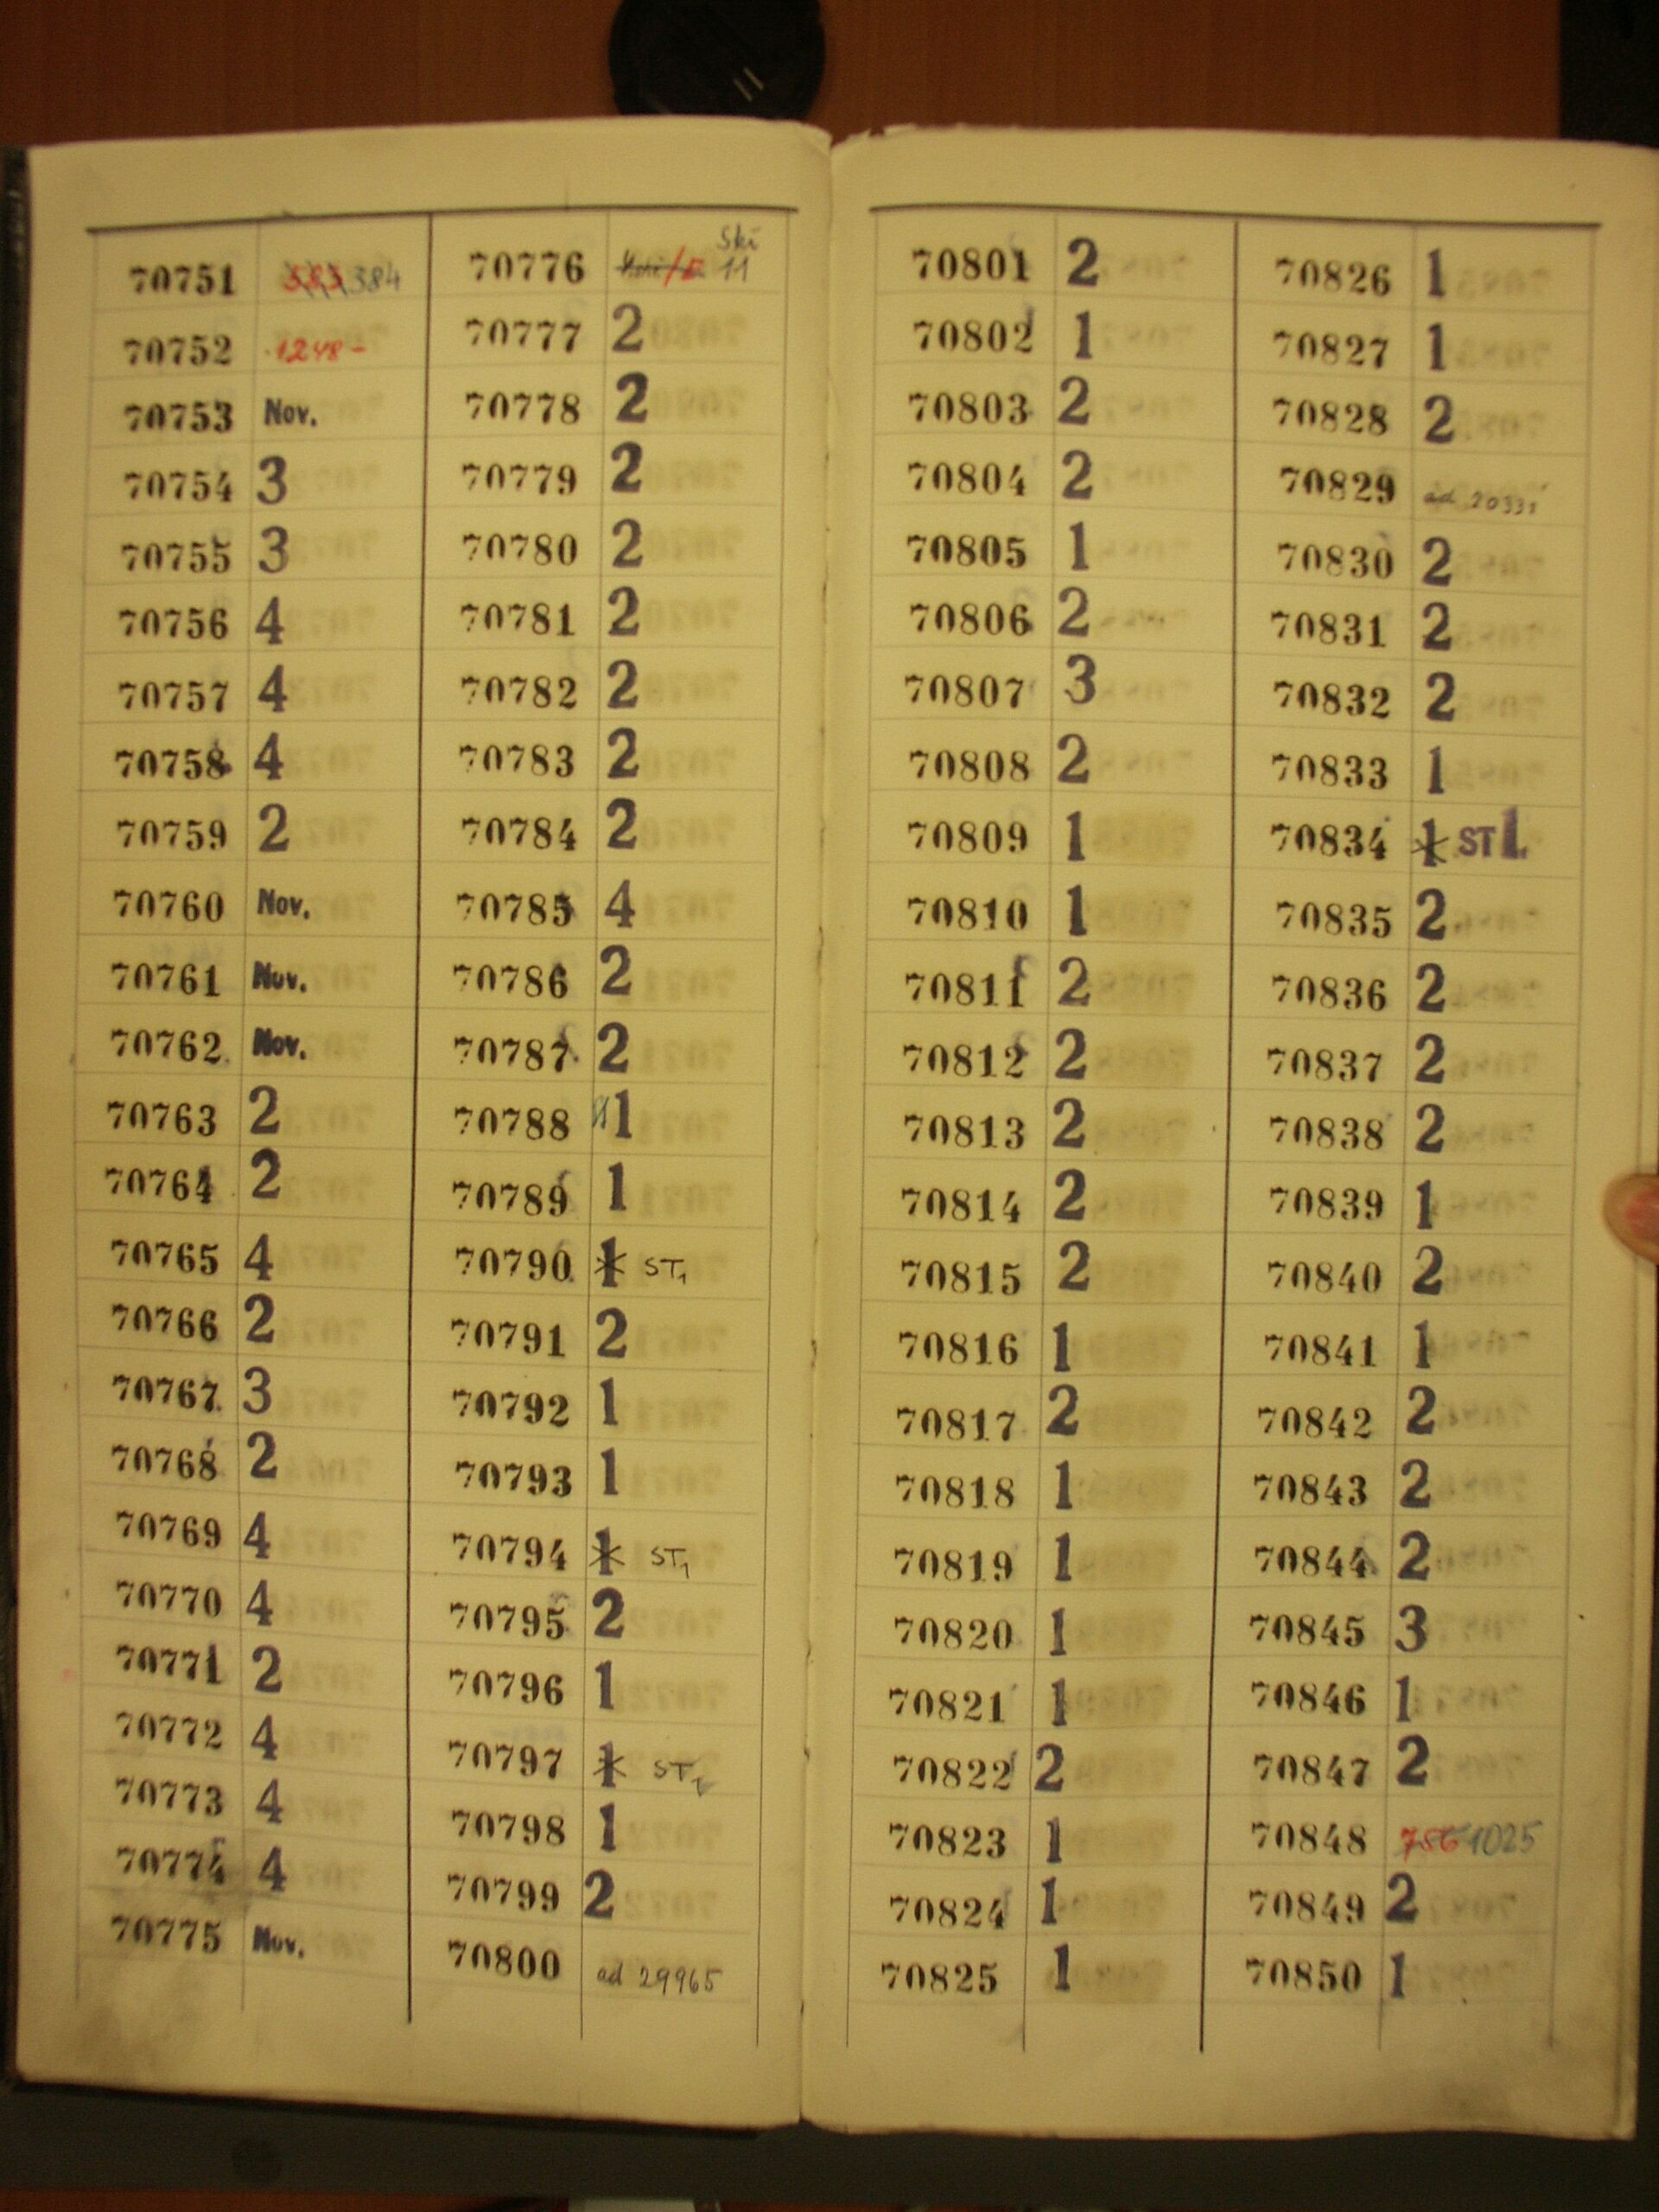 70751 383 384
70752 1248-
70753 Nov.
70754 3
70755 3
70756 4
70757 4
70758 4
70759 2
70760 Nov.
70761 Nov.
70762 Nov.
70763 2
70764 2
70765 4
70766 2
70767 3
70768 2
70769 4
70770 4
70771 2
70772 4
70773 4
70774 4
70775 Nov.
Ski
70776 11
70777 2
70778 2
70779 2
70780 2
70781 2
70782 2
70783 2
70784 2
70785 4
70786 2
70787 2
70788 1
70789 1
70790 1 ST1
70791 2
70792 1
70793 1
70794 1 ST1
70795 2
70796 1
70797 1 ST1
70798 1
70799 2
70800 ad 29965
70801 2
70802 1
70803 2
70804 2
70805 1
70806 2
70807 3
70808 2
70809 1
70810 1
70811 2
70812 2
70813 2
70814 2
70815 2
70816 1
70817 2
70818 1
70819 1
70820 1
70821 1
70822 2
70823 1
70824 1
70825 1
70826 1
70827 1
70828 2
70829 ad 20331
70830 2
70831 2
70832 2
70833 1
70834 1 ST1.
70835 2
70836 2
70837 2
70838 2
70839 1
70840 2
70841 1
70842 2
70843 2
70844 2
70845 3
70846 1
70847 2
70848 786 1025
70849 2
70850 1